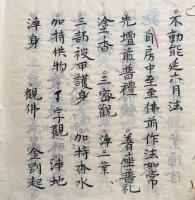 不動能延六月法
自房中至至佛前作法如常
先壇前普禮 着座普礼
塗香 三密觀 淨三業
三部被甲護身 加持香水
加持供物 字觀 淨地
淨身 觀佛 金剛起